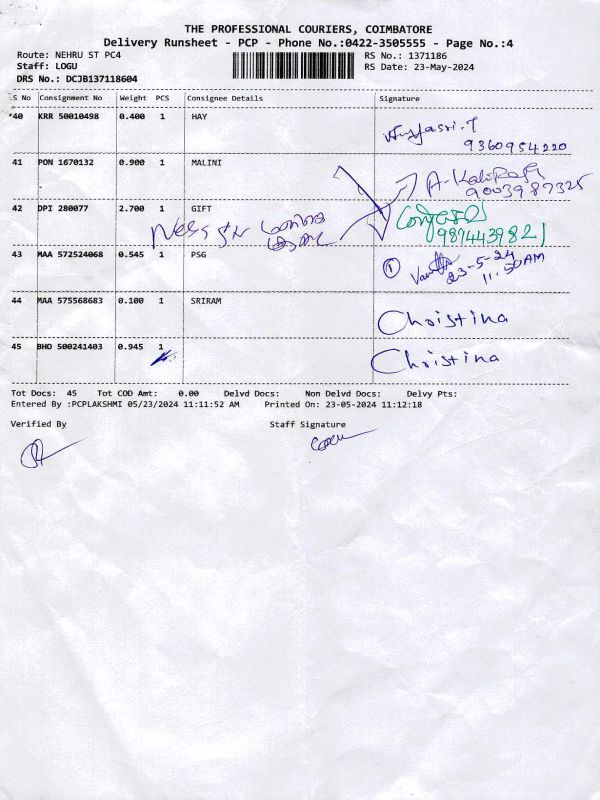 THE PROFESSIONAL COURIERS, COIMBATORE
Delivery Runsheet - PCP - Phone No.:0422-3505555 - Page No.:4
Route: NEHRU ST PC4 RS No.: 1371186
Staff: LOGU RS Date: 23-May-2024
DRS No.: DCJB137118604
S No Consignment No Weight PCS Consignee Details Signature
40 KRR 50010498 0.400 1 HAY
9360954220
41 PON 1670132 0.900 1 MALINI
9003987325
42 DPI 280077 2.700 1 GIFT
9894439821
43 MAA 572524068 0.545 1 PSG 1
23-5-24
11.50AM
44 MAA 575568683 0.100 1 SRIRAM Christina
45 BHO 500241403 0.945 1 Christina
Tot Docs: 45 Tot COD Amt: 0.00 Delvd Docs: Non Delvd Docs: Delvy Pts:
Entered By :PCPLAKSHMI 05/23/2024 11:11:52 AM Printed On: 23-05-2024 11:12:18
Verified By Staff Signature